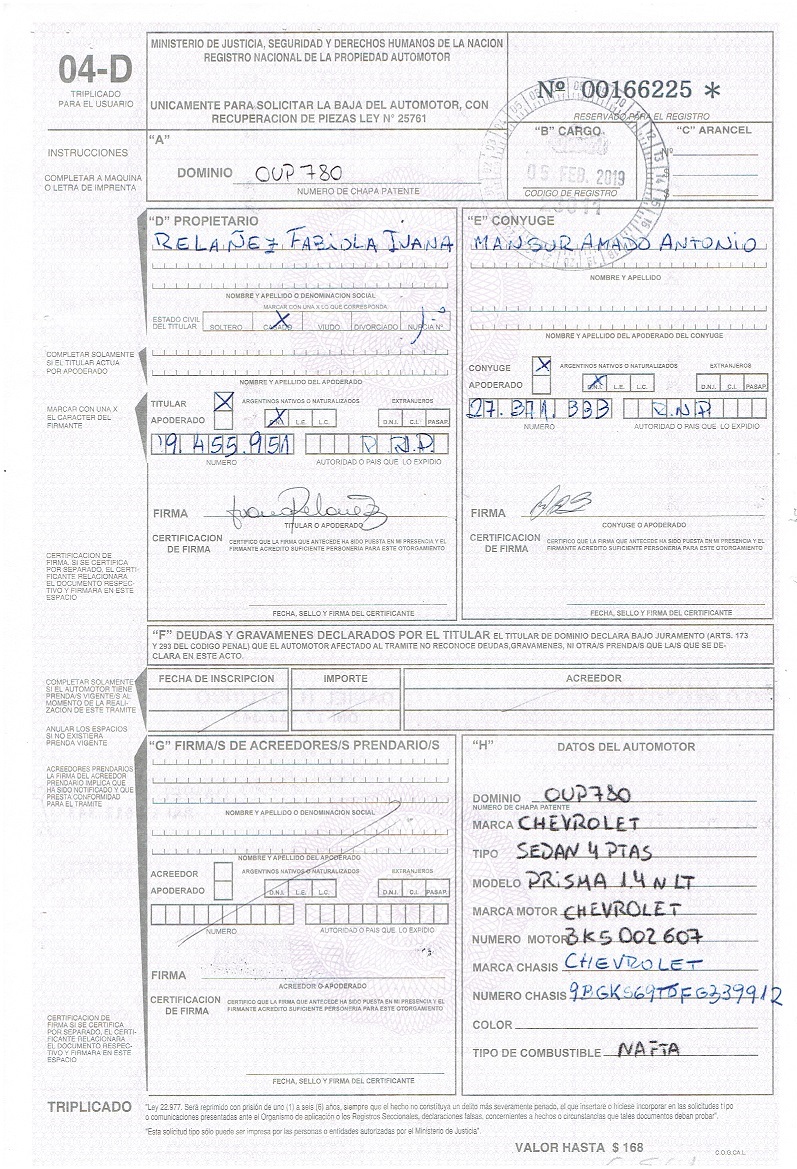 04-D
TRIPLICADO
PARA EL USUARIO
MINISTERIO DE JUSTICIA, SEGURIDAD Y DERECHOS HUMANOS DE LA NACION
REGISTRO NACIONAL DE LA PROPIEDAD AUTOMOTOR
UNICAMENTE PARA SOLICITAR LA BAJA DEL AUTOMOTOR, CON
RECUPERACION DE PIEZAS LEY N° 25761
Nº 00166225 *
RESERVADO PARA EL REGISTRO
INSTRUCCIONES
COMPLETAR A MAQUINA
O LETRA DE IMPRENTA
"A"
DOMINIO OUP 780
NUMERO DE CHAPA PATENTE
"B" CARGO
05 FEB. 2019
CODIGO DE REGISTRO
"C" ARANCEL
Nº
"D" PROPIETARIO
RELAÑEZ FABIOLA JUANA
NOMBRE Y APELLIDO O DENOMINACION SOCIAL
MARCAR CON UNA X LO QUE CORRESPONDA
ESTADO CIVIL
DEL TITULAR
SOLTERO CASADO X VIUDO DIVORCIADO NUPCIA Nº 1º
COMPLETAR SOLAMENTE
SI EL TITULAR ACTUA
POR APODERADO
NOMBRE Y APELLIDO DEL APODERADO
MARCAR CON UNA X
EL CARACTER DEL
FIRMANTE
TITULAR X
APODERADO
ARGENTINOS NATIVOS O NATURALIZADOS
D.N.I. X L.E. L.C.
EXTRANJEROS
D.N.I. C.I. PASAP.
19.455.951 R.N.P.
NUMERO
AUTORIDAD O PAIS QUE LO EXPIDIO
FIRMA
TITULAR O APODERADO
CERTIFICACION
DE FIRMA
CERTIFICO QUE LA FIRMA QUE ANTECEDE HA SIDO PUESTA EN MI PRESENCIA Y EL
FIRMANTE ACREDITO SUFICIENTE PERSONERIA PARA ESTE OTORGAMIENTO
CERTIFICACION DE
FIRMA. SI SE CERTIFICA
POR SEPARADO, EL CERTI-
FICANTE RELACIONARA
EL DOCUMENTO RESPEC-
TIVO Y FIRMARA EN ESTE
ESPACIO
FECHA, SELLO Y FIRMA DEL CERTIFICANTE
"E" CONYUGE
MANSUR AMADO ANTONIO
NOMBRE Y APELLIDO
NOMBRE Y APELLIDO DEL APODERADO DEL CONYUGE
CONYUGE X
APODERADO
ARGENTINOS NATIVOS O NATURALIZADOS
D.N.I. X L.E. L.C.
EXTRANJEROS
D.N.I. C.I. PASAP.
27.371.333 R.N.P.
NUMERO
AUTORIDAD O PAIS QUE LO EXPIDIO
FIRMA
CONYUGE O APODERADO
CERTIFICACION
DE FIRMA
CERTIFICO QUE LA FIRMA QUE ANTECEDE HA SIDO PUESTA EN MI PRESENCIA Y EL
FIRMANTE ACREDITO SUFICIENTE PERSONERIA PARA ESTE OTORGAMIENTO
FECHA, SELLO Y FIRMA DEL CERTIFICANTE
"F" DEUDAS Y GRAVAMENES DECLARADOS POR EL TITULAR EL TITULAR DE DOMINIO DECLARA BAJO JURAMENTO (ARTS. 173
Y 293 DEL CODIGO PENAL) QUE EL AUTOMOTOR AFECTADO AL TRAMITE NO RECONOCE DEUDAS,GRAVAMENES, NI OTRA/S PRENDA/S QUE LA/S QUE SE DE-
CLARA EN ESTE ACTO.
COMPLETAR SOLAMENTE
SI EL AUTOMOTOR TIENE
PRENDA/S VIGENTE/S AL
MOMENTO DE LA REALI-
ZACION DE ESTE TRAMITE
ANULAR LOS ESPACIOS
SI NO EXISTIERA
PRENDA VIGENTE
FECHA DE INSCRIPCION
IMPORTE
ACREEDOR
ACREEDORES PRENDARIOS
LA FIRMA DEL ACREEDOR
PRENDARIO IMPLICA QUE
HA SIDO NOTIFICADO Y QUE
PRESTA CONFORMIDAD
PARA EL TRAMITE
"G" FIRMA/S DE ACREEDORES/S PRENDARIO/S
NOMBRE Y APELLIDO O DENOMINACION SOCIAL
NOMBRE Y APELLIDO DEL APODERADO
ACREEDOR
APODERADO
ARGENTINOS NATIVOS O NATURALIZADOS
D.N.I. L.E. L.C.
EXTRANJEROS
D.N.I. C.I. PASAP.
NUMERO
AUTORIDAD O PAIS QUE LO EXPIDIO
FIRMA
ACREEDOR O APODERADO
CERTIFICACION
DE FIRMA
CERTIFICO QUE LA FIRMA QUE ANTECEDE HA SIDO PUESTA EN MI PRESENCIA Y EL
FIRMANTE ACREDITO SUFICIENTE PERSONERIA PARA ESTE OTORGAMIENTO
CERTIFICACION DE
FIRMA SI SE CERTIFICA
POR SEPARADO, EL CERTI-
FICANTE RELACIONARA
EL DOCUMENTO RESPEC-
TIVO Y FIRMARA EN ESTE
ESPACIO
FECHA, SELLO Y FIRMA DEL CERTIFICANTE
"H" DATOS DEL AUTOMOTOR
DOMINIO OUP780
NUMERO DE CHAPA PATENTE
MARCA CHEVROLET
TIPO SEDAN 4 PTAS
MODELO PRISMA 1.4 N LT
MARCA MOTOR CHEVROLET
NUMERO MOTOR 3K5002607
MARCA CHASIS CHEVROLET
NUMERO CHASIS 9BGKS69T0FG339912
COLOR
TIPO DE COMBUSTIBLE NAFTA
TRIPLICADO
"Ley 22.977. Será reprimido con prisión de uno (1) a seis (6) años, siempre que el hecho no constituya un delito más severamente penado, el que insertare o hiciese incorporar en las solicitudes tipo
o comunicaciones presentadas ante el Organismo de aplicación o los Registros Seccionales, declaraciones falsas, concernientes a hechos o circunstancias que tales documentos deban probar".
"Esta solicitud tipo sólo puede ser impresa por las personas o entidades autorizadas por el Ministerio de Justicia".
VALOR HASTA $ 168
C.O.G.CAL.